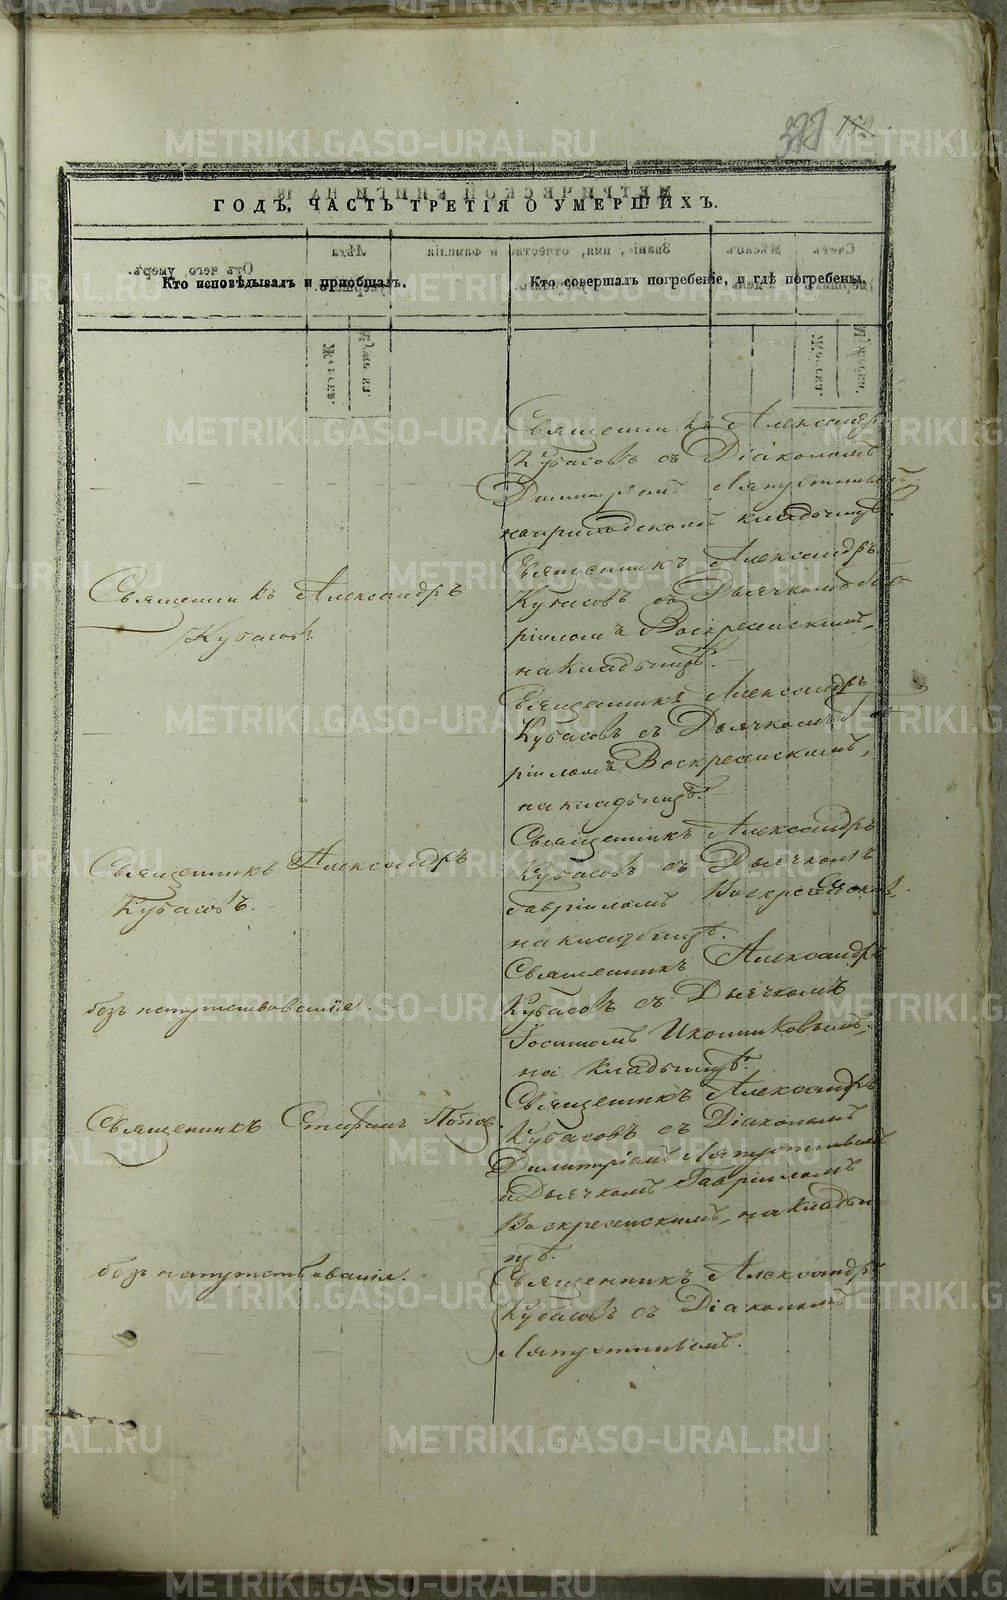 152
ГОДЪ, ЧАСТЬ ТРЕТІЯ О УМЕРШИХЪ.
Кто исповѣдывалъ и пріобщалъ.
Кто совершалъ погребеніе, и гдѣ погребены.
Священникъ Александръ
Кубасовъ съ Діакономъ
Димитріемъ Ляпустинымъ
на приходскомъ кладбищѣ.
Священникъ Александръ
Кубасовъ.
Священникъ Александръ
Кубасовъ со Дьячкомъ Гав-
ріиломъ Воскресенскимъ,
на кладбищѣ.
Священникъ Александръ
Кубасовъ съ Дьячкомъ Гав-
ріиломъ Воскресенскимъ,
на кладбищѣ.
Священникъ Александръ
Кубасовъ.
Священникъ Александръ
Кубасовъ съ Дьячкомъ
Гавріиломъ Воскресенскимъ,
на кладбищѣ.
безъ напутствованія.
Священникъ Александръ
Кубасовъ съ Дьячкомъ
Иконниковымъ,
на кладбищѣ.
Священникъ Стефанъ Попов
Священникъ Александръ
Кубасовъ съ Діакономъ
Димитріемъ Ляпустинымъ
и Дьячкомъ Гавріиломъ
Воскресенскимъ, на кладби
щѣ.
безъ напутствованія.
Священникъ Александръ
Кубасовъ съ Діакономъ
Ляпустинымъ.
METRIKI.GASO-URAL.RU